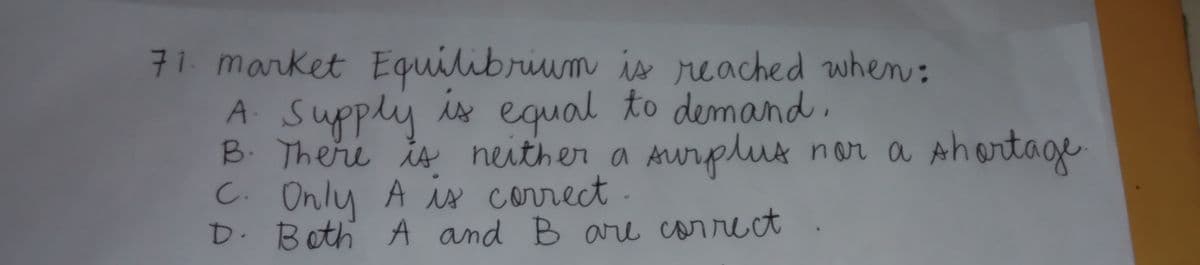 71. market Equilibrium is reached when:
A. Supply is equal to demand.
B. There is neither a surplus nor a shortage.
C. Only A is correct.
D. Both A and B are correct.